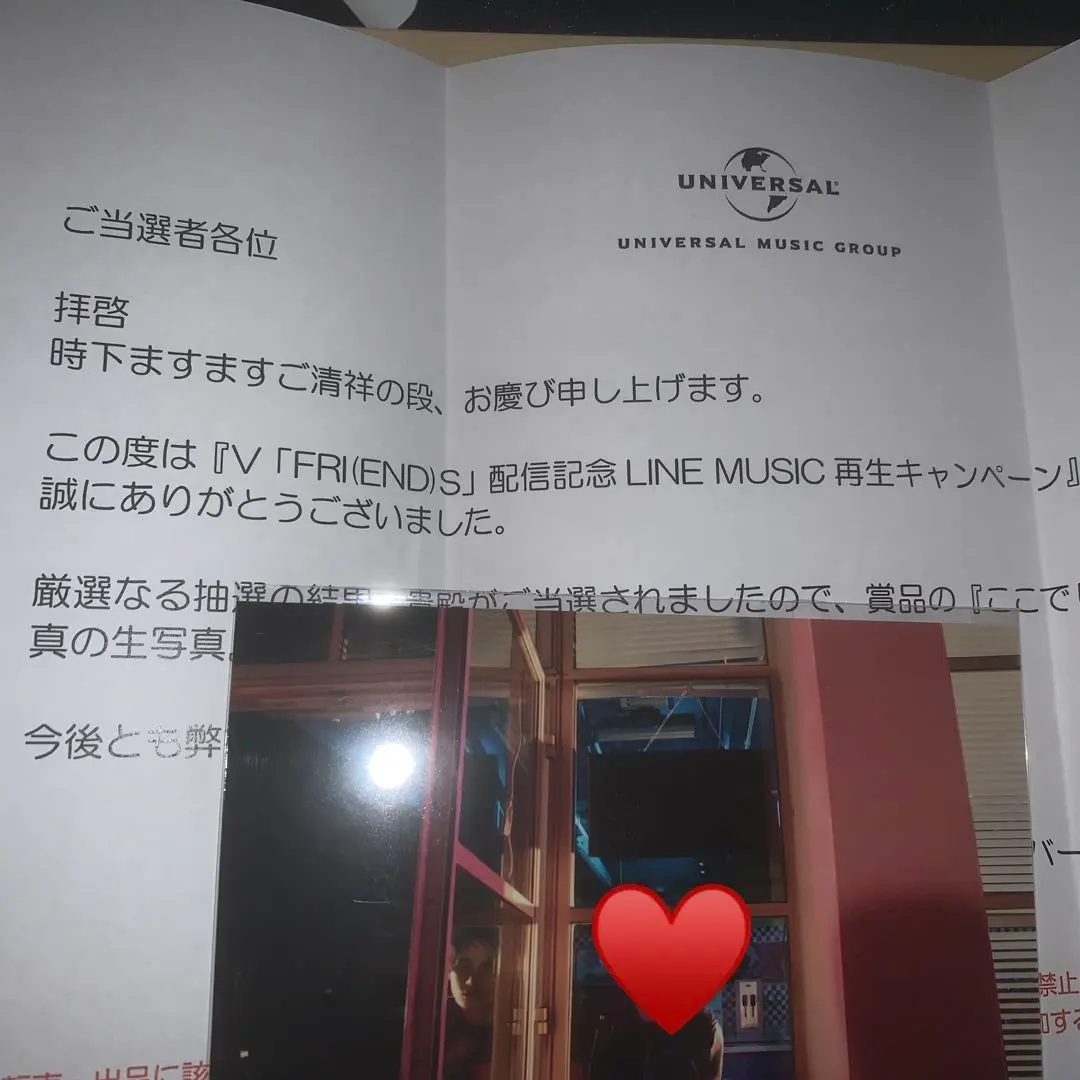 UNIVERSAL
UNIVERSAL MUSIC GROUP
ご当選者各位
拝啓
時下ますますご清祥の段、お慶び申し上げます。
この度は『V「FRI(END)S」配信記念 LINE MUSIC 再生キャンペーン』
誠にありがとうございました。
厳選なる抽選の結果、貴殿がご当選されましたので、賞品の『ここで
真の生写真
今後とも弊
バー
禁止
加する
転売、出品に該